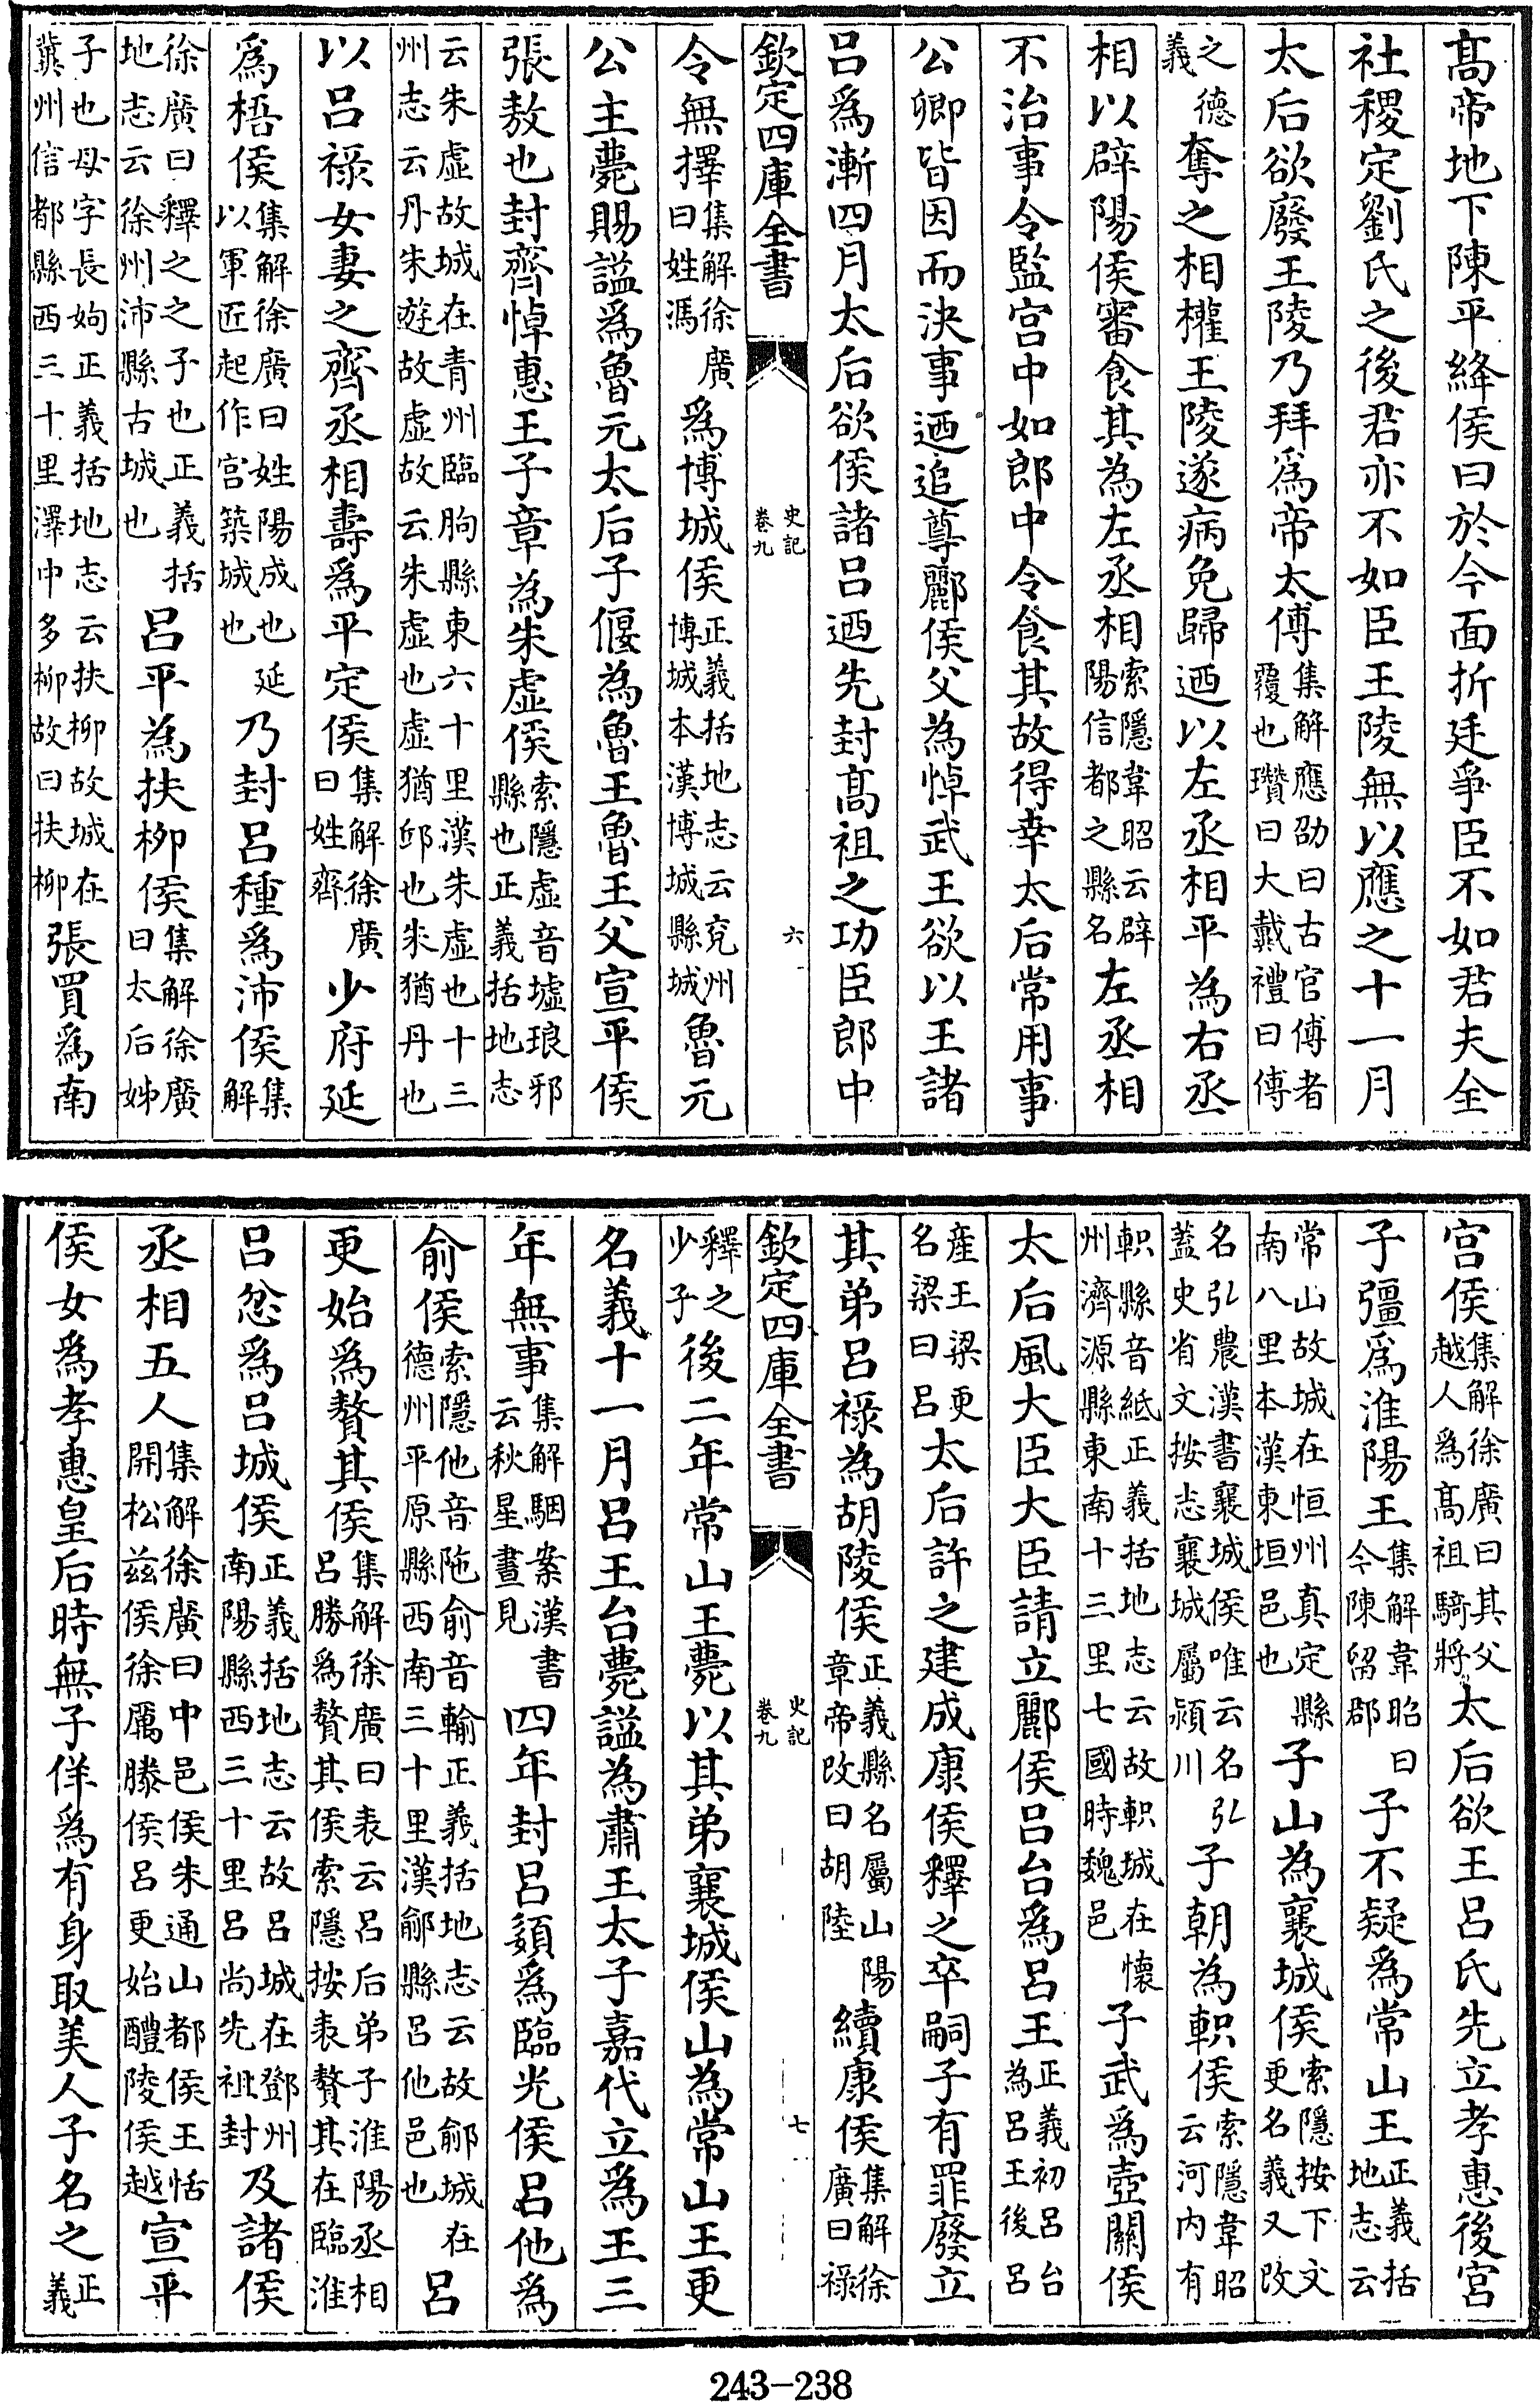 髙帝地下陳平絳侯曰於今面折廷爭臣不如君夫全
社稷定劉氏之後君亦不如臣王陵無以應之十一月
太后欲廢王陵乃拜爲帝太傅集解應劭曰古官傅者覆也瓚曰大戴禮曰傅
之德義奪之相權王陵遂病免歸迺以左丞相平為右丞
相以辟陽侯審食其為左丞相索隱韋昭云辟陽信都之縣名左丞相
不治事令監宫中如郎中令食其故得幸太后常用事
公卿皆因而決事迺追尊酈侯父為悼武王欲以王諸
吕爲漸四月太后欲侯諸吕迺先封髙祖之功臣郎中
欽定四庫全書 史記卷九 六
令無擇集解徐廣曰姓馮爲博城侯正義括地志云兗州博城本漢博城縣城魯元
公主薨賜謚爲魯元太后子偃為魯王魯王父宣平侯
張敖也封齊悼惠王子章為朱虚侯索隱虚音墟琅邪縣也正義括地志
云朱虚故城在青州臨朐縣東六十里漢朱虚也十三州志云丹朱遊故虚故云朱虚也虚猶邱也朱猶丹也
以吕祿女妻之齊丞相壽爲平定侯集解徐廣曰姓齊少府延
爲梧侯集解徐廣曰姓陽成也延以軍匠起作宫築城也乃封吕種爲沛侯集解
徐廣曰釋之之子也正義括地志云徐州沛縣古城也吕平為扶柳侯集解徐廣曰太后姊
子也母字長姁正義括地志云扶柳故城在冀州信都縣西三十里澤中多柳故曰扶柳張買爲南
宫侯集解徐廣曰其父越人爲髙祖騎將太后欲王吕氏先立孝惠後宫
子彊爲淮陽王集解韋昭曰今陳留郡子不疑爲常山王正義括地志云
常山故城在恒州真定縣南八里本漢東垣邑也子山為襄城侯索隱按下文更名義又改
名弘農漢書襄城侯唯云名弘蓋史省文按志襄城屬潁川子朝為軹侯索隱韋昭云河内有
軹縣音紙正義括地志云故軹城在懷州濟源縣東南十三里七國時魏邑子武爲壺關侯
太后風大臣大臣請立酈侯吕台爲吕王正義初吕台為吕王後吕
產王梁梁更名梁曰吕太后許之建成康侯釋之卒嗣子有罪廢立
其弟吕祿為胡陵侯正義縣名屬山陽章帝改曰胡陸續康侯集解徐廣曰祿
欽定四庫全書 史記卷九 七
釋之少子後二年常山王薨以其弟襄城侯山為常山王更
名義十一月吕王台薨謚為肅王太子嘉代立爲王三
年無事集解駰案漢書云秋星晝見四年封吕嬃爲臨光侯吕他爲
俞侯索隱他音陁俞音輸正義括地志云故鄃城在德州平原縣西南三十里漢鄃縣吕他邑也吕
更始為贅其侯集解徐廣曰表云吕后弟子淮陽丞相吕勝爲贅其侯索隱按表贅其在臨淮
吕忿爲吕城侯正義括地志云故吕城在鄧州南陽縣西三十里吕尚先祖封及諸侯
丞相五人集解徐廣曰中邑侯朱通山都侯王恬開松兹侯徐厲滕侯吕更始醴陵侯越宣平
侯女爲孝惠皇后時無子佯爲有身取美人子名之正義
243-238